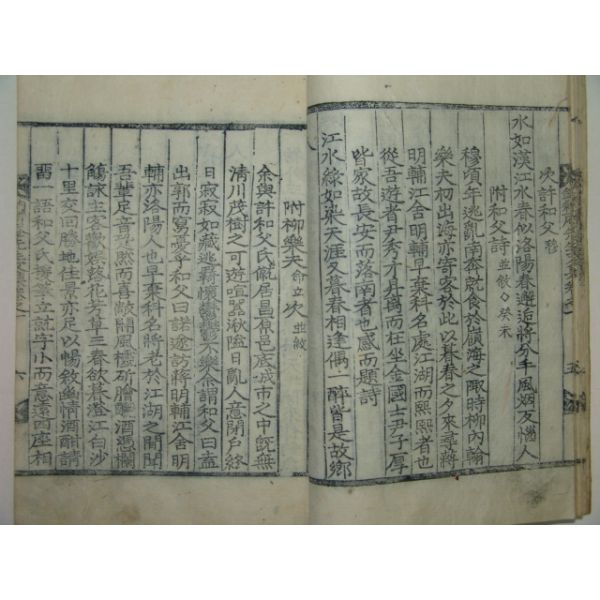 次許和父穆
水如漢江水春似洛陽春邂逅將分手風烟友惱人
附和父詩並敘○癸未
穆頃年逃亂南奔就食於嶺海之陬時柳內翰
樂夫初出海亦寄客於此以暮春之夕來尋蔣
明輔江舍明輔早棄科名處江湖而熙熙者也
從吾遊者尹秀才昇离而在坐金國士尹子厚
皆家故長安而落南者也感而題詩
江水綠如染天涯又暮春相逢偶一醉皆是故鄉
附柳樂夫命立次並敘
余與許和父氏僦居昌原邑底城市之中旣無
淸川茂樹之可遊喧囂湫隘日亂人意閉戶終
日寂寂如藏逃藉懷鬱鬱不樂余謂和父曰盍
出郭而寫憂乎和父曰諾遂訪蔣明輔江舍明
輔亦洛陽人也早棄科名將老於江湖之間聞
吾輩足音跫然而喜敞闢風欞斫膾釃酒憑欄
觴詠主客歡娛落花芳草三春欲暮澄江白沙
十里交回勝地佳景亦足以暢敘幽情酒酣請
留一語和父援筆立就字小而意遠四座相
五
六